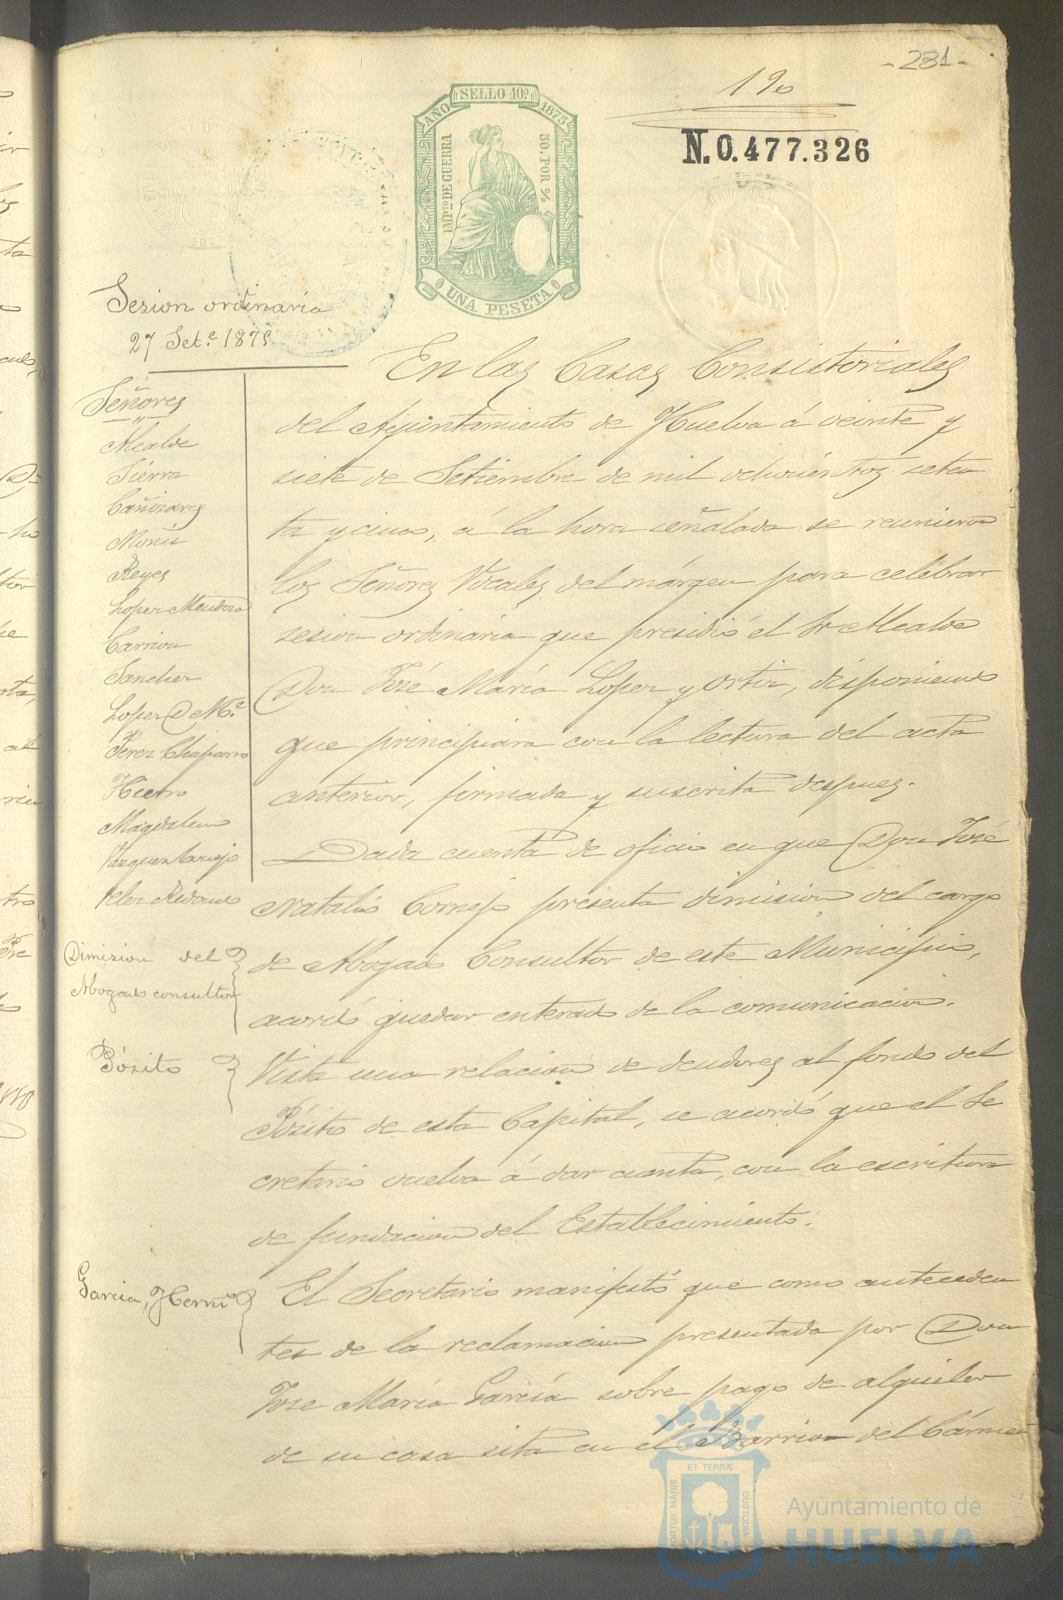 -231-
190
N. 0.477.326
AÑO SELLO 10º 1875
IMPto DE GUERRA
50. POR %
UNA PESETA
Sesion ordinaria
27 Set.e 1875
Señores
Alcalde
Sierra
Cañizares
Monís
Reyes
Lopez Mendoza
Carrion
Sanchez
Lopez D. M.l
Perez Chaparro
Hierro
Magdalena
Vazquez Cornejo
En las Casas Consistoriales
del Ayuntamiento de Huelva á veinte y
siete de Setiembre de mil ochocientos seten
ta y cinco, á la hora señalada se reunieron
los Señores Vocales del márgen para celebrar
sesion ordinaria que presidió el Sr Alcalde
Don José María Lopez y Ortiz, disponiendo
que principiara con la lectura del acta
anterior, firmada y suscrita despues.
Dada cuenta de oficio en que Don José
Natalio Cornejo presenta dimision del cargo
Dimision del
Abogado consultor
de Abogado Consultor de este Municipio,
acordó quedar enterado de la comunicacion.
Pósito
Vista una relacion de deudores al fondo del
Pósito de esta Capital, se acordó que el Se
cretario vuelva á dar cuenta, con la escritura
de fundacion del Establecimiento.
Garcia, Herm.
El Secretario manifestó que como anteceden
tes de la reclamacion presentada por Don
Jose María García sobre pago de alquiler
de su casa sita en el Barrio del Cármen
PORTUS MARIS ET TERRÆ CUSTODIA
Ayuntamiento de
HUELVA